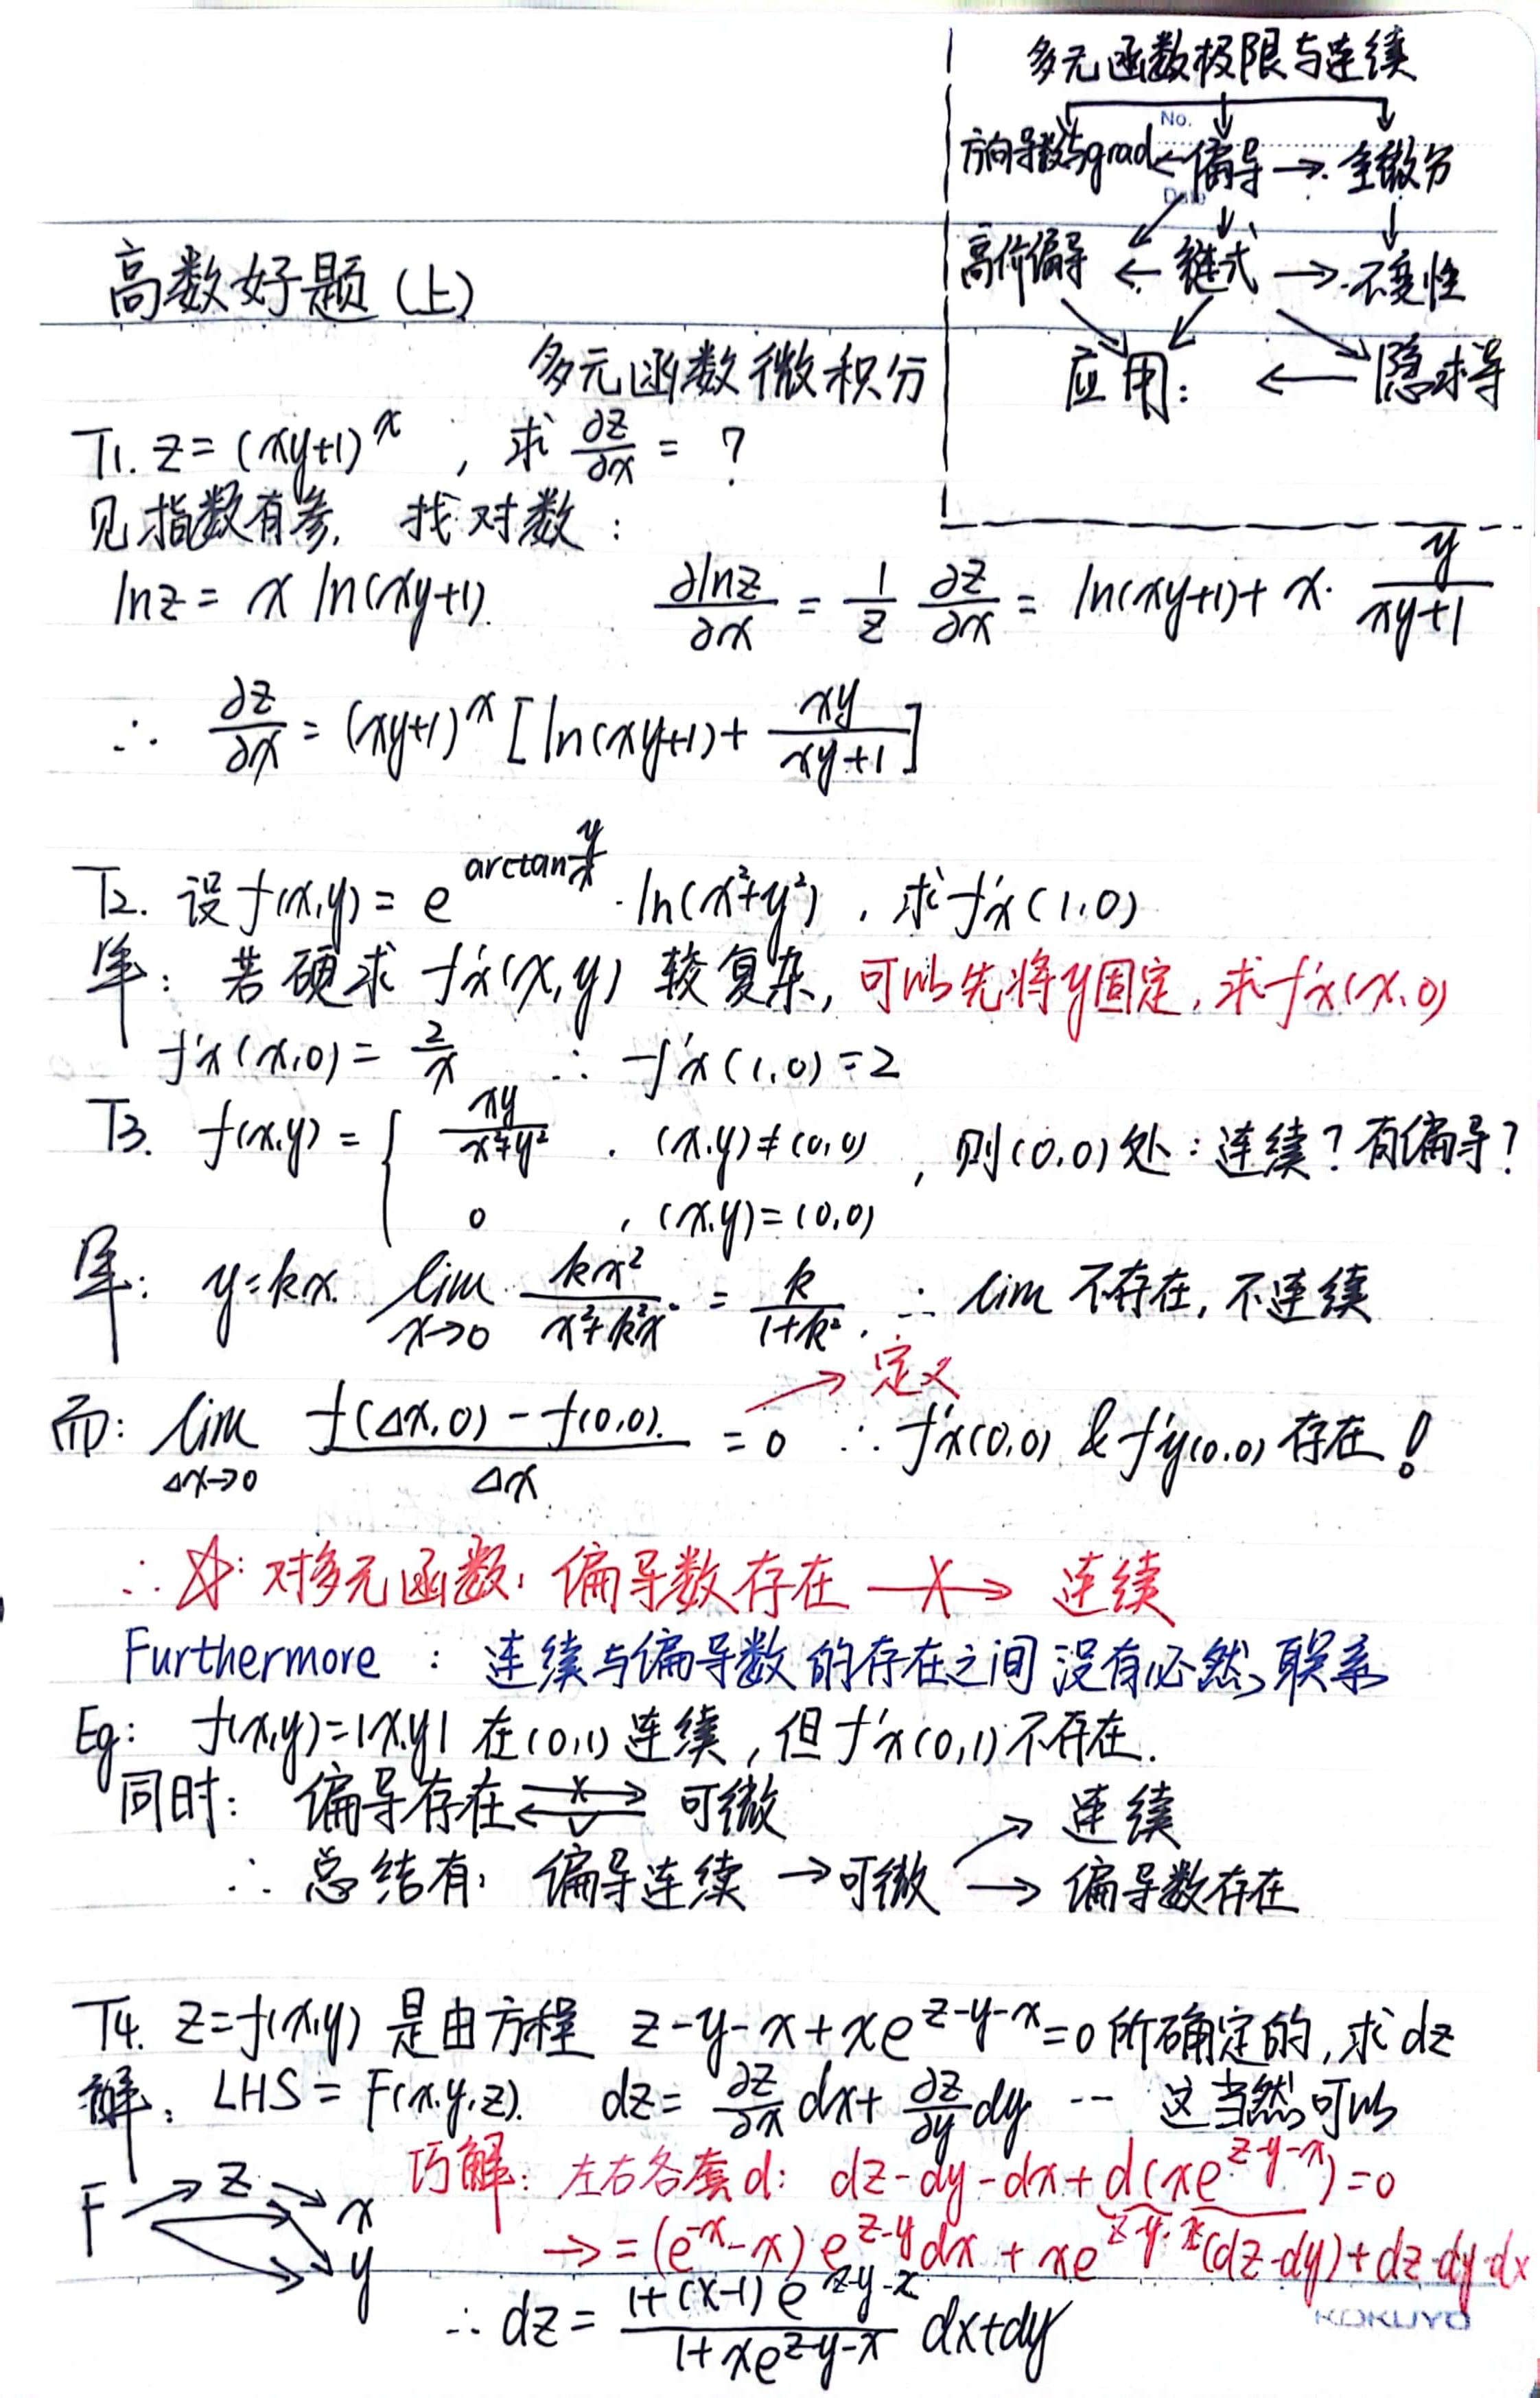 多元函数极限与连续
No.
方向导数与grad ← 偏导 → 全微分
Date
高阶偏导 ← 链式 → 不变性
应用: ← 隐求导
高数好题(上)
多元函数微积分
T1. z = (xy+1)^x , 求 ∂z/∂x = ?
见指数有参, 找对数:
lnz = x ln(xy+1). ∂lnz/∂x = 1/z ∂z/∂x = ln(xy+1) + x· y/(xy+1)
∴ ∂z/∂x = (xy+1)^x [ln(xy+1) + xy/(xy+1)]
T2. 设 f(x,y) = e^(arctan y/x) · ln(x²+y²) , 求 f'x(1,0)
解: 若硬求 f'x(x,y) 较复杂, 可以先将y固定, 求 f'x(x,0)
f'x(x,0) = 2/x ∴ f'x(1,0) = 2
T3. f(x,y) = { xy/(x²+y²) , (x,y)≠(0,0) , 则(0,0)处: 连续? 有偏导?
0 , (x,y)=(0,0)
解: y=kx. lim x→0 kx²/(x²+k²x²) = k/(1+k²). ∴ lim 不存在, 不连续
→ 定义
而: lim Δx→0 (f(Δx,0) - f(0,0))/Δx = 0 ∴ f'x(0,0) & f'y(0,0) 存在!
∴ ☆: 对多元函数: 偏导数存在 —X→ 连续
Furthermore : 连续与偏导数的存在之间没有必然联系
Eg: f(x,y)=|xy| 在(0,1)连续, 但 f'x(0,1) 不存在.
同时: 偏导存在 ⇄ 可微
→ 连续
∴ 总结有: 偏导连续 → 可微 → 偏导数存在
T4. z=f(x,y) 是由方程 z-y-x+xe^(z-y-x)=0 所确定的, 求 dz
解: LHS = F(x,y,z). dz = ∂z/∂x dx + ∂z/∂y dy ··· 这当然可以
巧解: 左右各套d: dz-dy-dx+d(xe^(z-y-x))=0
F → z → x
y
→ = (e^(-x) - x) e^(z-y) dx + xe^(z-y-x) (dz-dy) + dz-dy-dx
∴ dz = (1+(x-1)e^(z-y-x))/(1+xe^(z-y-x)) dx+dy
KOKUYO